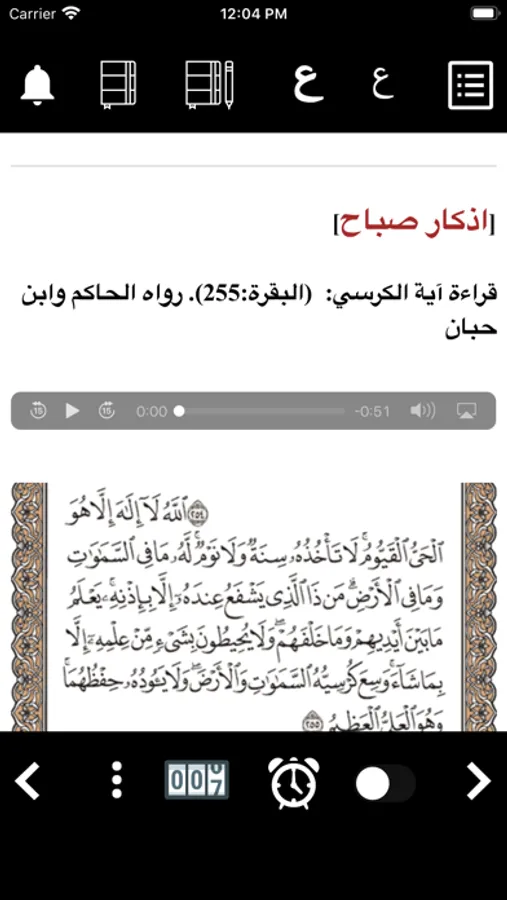 Carrier 12:04 PM
ع ع
[اذكار صباح]
قراءة آية الكرسي: (البقرة:255). رواه الحاكم وابن
حبان
15 15 0:00 -0:51
٢٥٤ ٱللَّهُ لَآ إِلَٰهَ إِلَّا هُوَ
ٱلْحَىُّ ٱلْقَيُّومُ ۚ لَا تَأْخُذُهُۥ سِنَةٌ وَلَا نَوْمٌ ۚ لَّهُۥ مَا فِى ٱلسَّمَٰوَٰتِ
وَمَا فِى ٱلْأَرْضِ ۗ مَن ذَا ٱلَّذِى يَشْفَعُ عِندَهُۥٓ إِلَّا بِإِذْنِهِۦ ۚ يَعْلَمُ
مَا بَيْنَ أَيْدِيهِمْ وَمَا خَلْفَهُمْ ۖ وَلَا يُحِيطُونَ بِشَىْءٍ مِّنْ عِلْمِهِۦٓ إِلَّا
بِمَا شَآءَ ۚ وَسِعَ كُرْسِيُّهُ ٱلسَّمَٰوَٰتِ وَٱلْأَرْضَ ۖ وَلَا يَـُٔودُهُۥ حِفْظُهُمَا ۚ
وَهُوَ ٱلْعَلِىُّ ٱلْعَظِيمُ ٢٥٥